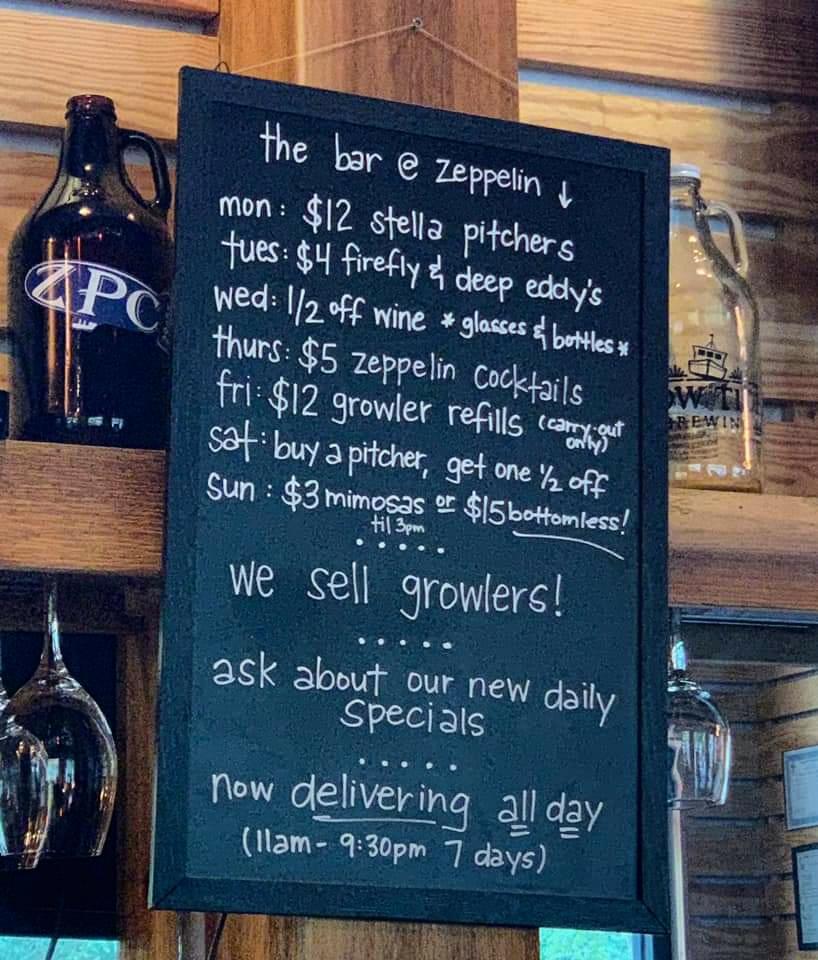 the bar @ zeppelin ↓
mon: $12 stella pitchers
tues: $4 firefly & deep eddy's
wed: 1/2 off wine * glasses & bottles *
thurs: $5 zeppelin cocktails
fri: $12 growler refills (carry-out only)
sat: buy a pitcher, get one 1/2 off
sun: $3 mimosas or $15 bottomless!
til 3pm
.....
we sell growlers!
.....
ask about our new daily
specials
.....
now delivering all day
(11am - 9:30pm 7 days)
ZPC